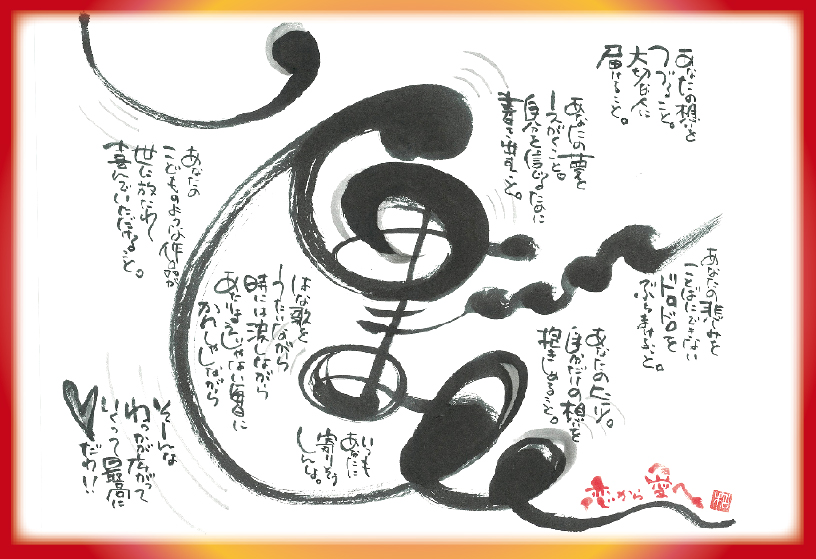 あなたの想いを
つづること。
大切な人に
届けること。
あなたの夢を
えがくこと。
自分を信じるために
書き出すこと。
あなたの悲しみを
ことばにできない
ドロドロを
ぶちまけること。
あなたの
自分だけの想いを
抱きしめること。
あなたの
こどものような作品が
世に放たれ
喜んでいただけること。
はな歌を
うたいながら
時には涙しながら
あたりまえじゃない毎日に
かんしゃしながら
いつも
あなたに
寄りそう
そーんな
わっかが広がって
いくって最高に
だわ!!
恋から愛へ